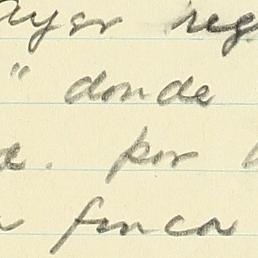 ayer reg
" donde
a. por
finca